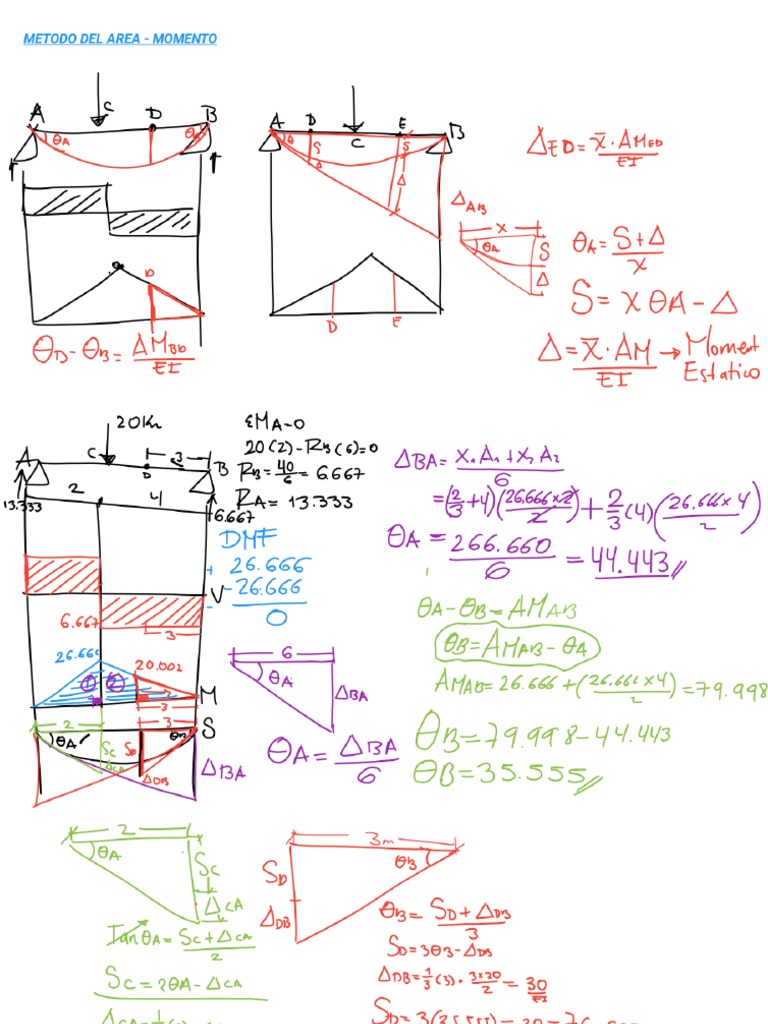 METODO DEL AREA - MOMENTO
A C D B
θA θB
D
θD - θB = AMBD / EI
A D C E B
θ S Δ S Δ
ΔAB
D E
ΔED = x̄ · AMED / EI
x
θA S Δ
θA = S + Δ / x
S = x θA - Δ
Δ = x̄ · AM / EI → Moment Estatico
20Kn
A C 3 B
2 4
13.333 6.667
ΣMA=0
20(2) - RB(6) = 0
RB = 40/6 = 6.667
RA = 13.333
DMF
+ 26.666
- 26.666
0
V
6.667 3
26.666 20.002
① ②
M
3
2 3 S
θA SC SD θB
ΔCA ΔDB ΔBA
6
θA ΔBA
θA = ΔBA / 6
ΔBA = x1 A1 + x2 A2 / 6
= (2/3 + 4)(26.666 x 2 / 2) + 2/3 (4)(26.666 x 4 / 2)
θA = 266.660 / 6 = 44.443
θA - θB = AMAB
θB = AMAB - θA
AMAB = 26.666 + (26.666 x 4 / 2) = 79.998
θB = 79.998 - 44.443
θB = 35.555
2
θA SC
ΔCA
Tan θA = SC + ΔCA / 2
SC = 2θA - ΔCA
3m
SD θB
ΔDB
θB = SD + ΔDB / 3
SD = 3θB - ΔDB
ΔDB = 1/3 (3) · 3x20 / 2 = 30 / EI